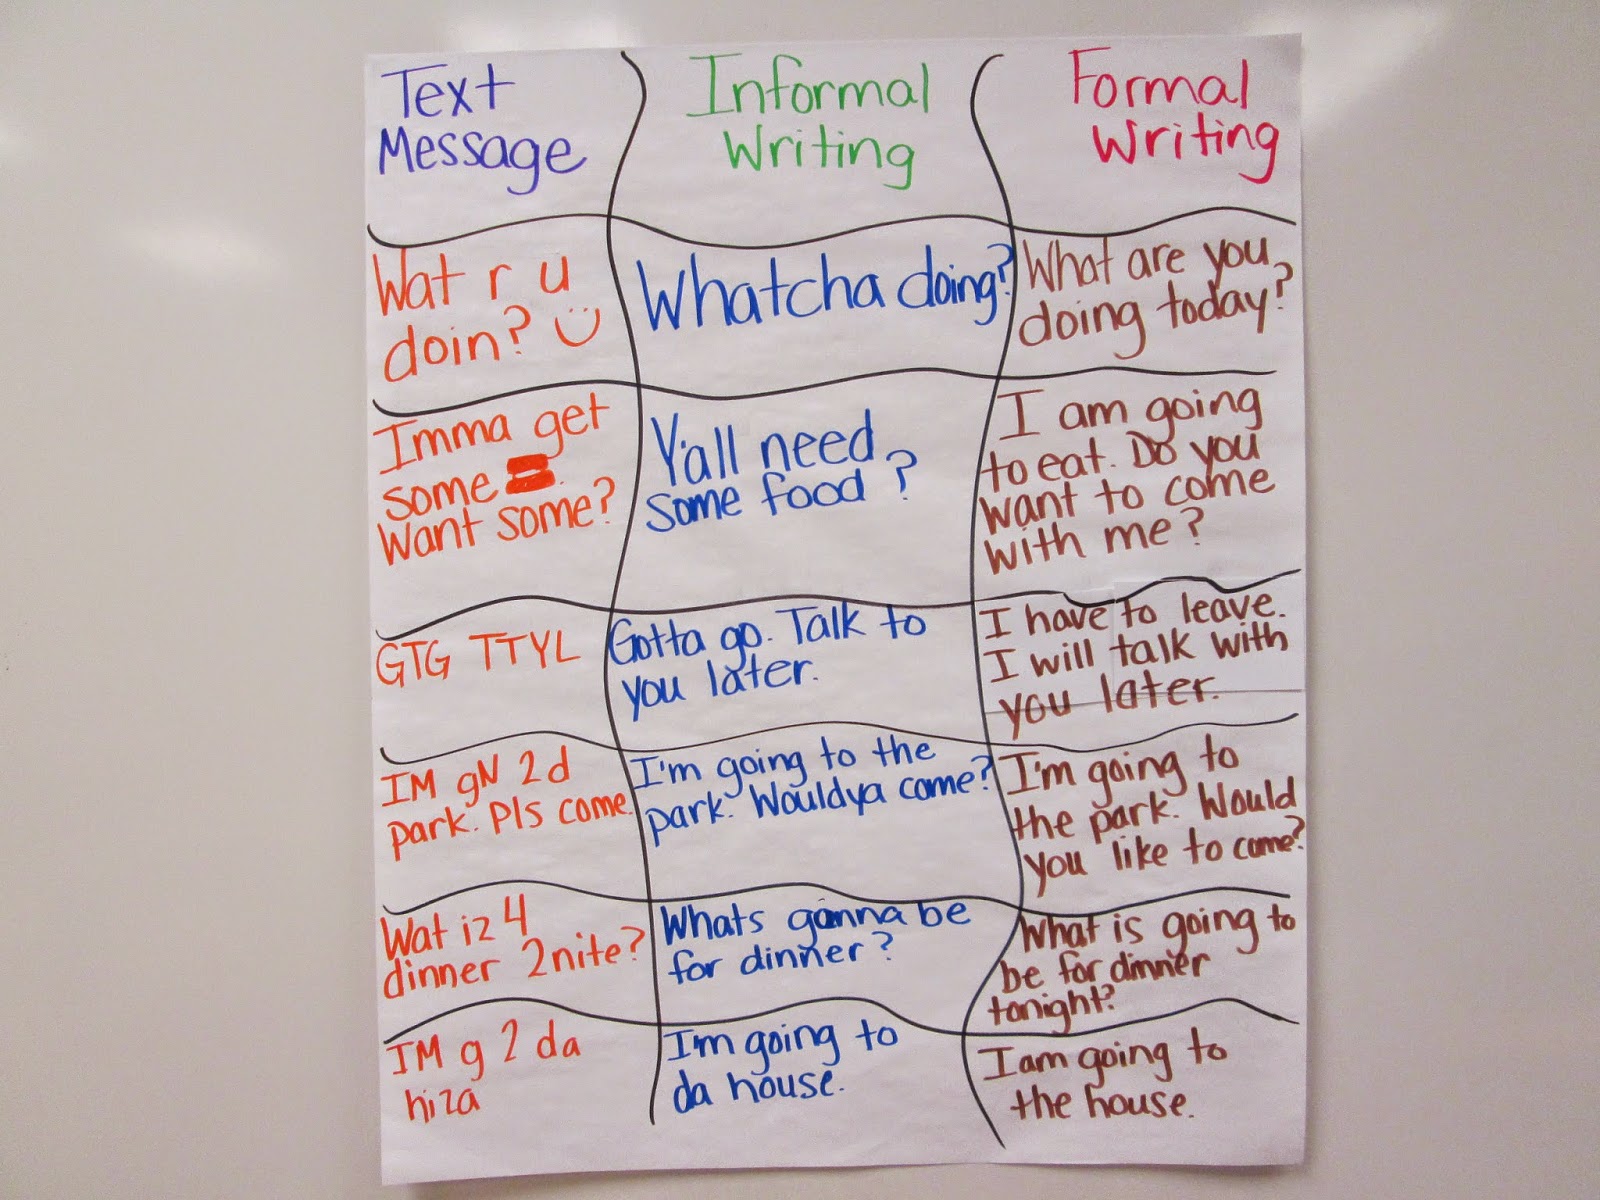 Text
Message
Informal
Writing
Formal
Writing
Wat r u
doin?
Whatcha doing?
What are you
doing today?
Imma get
some
Want some?
Y'all need
some food?
I am going
to eat. Do you
want to come
with me?
GTG TTYL
Gotta go. Talk to
you later.
I have to leave.
I will talk with
you later.
IM gN 2 d
park. Pls come.
I'm going to the
park. Wouldya come?
I'm going to
the park. Would
you like to come?
Wat iz 4
dinner 2nite?
Whats gonna be
for dinner?
What is going to
be for dinner
tonight?
IM g 2 da
hiza
I'm going to
da house.
I am going to
the house.